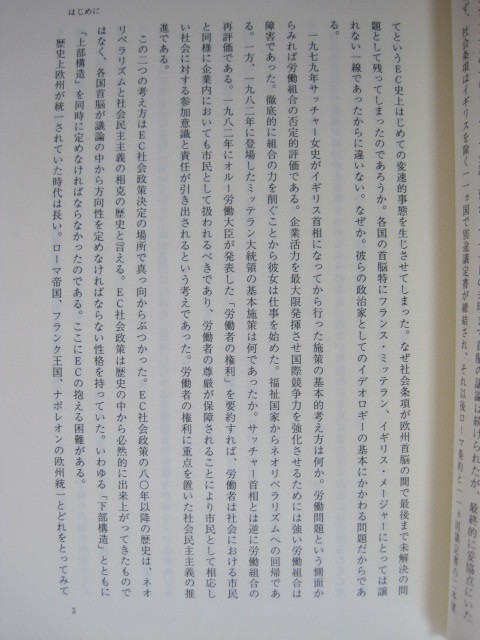 ず、社会条項はイギリスを除く一一ヵ国で別途議定書が締結され、それ以後ローマ条約と一一ヵ国議定書の二本建
はじめに
てというEC史上はじめての変速的事態を生じさせてしまった。なぜ社会条項が欧州首脳の間で最後まで未解決の問
題として残ってしまったのであろうか。各国の首脳特にフランス・ミッテラン、イギリス・メージャーにとっては譲
れない一線であったからに違いない。なぜか。彼らの政治家としてのイデオロギーの基本にかかわる問題だからであ
る。
一九七九年サッチャー女史がイギリス首相になってから行った施策の基本的考え方は何か。労働問題という側面か
らみれば労働組合の否定的評価である。企業活力を最大限発揮させ国際競争力を強化させるためには強い労働組合は
障害であった。徹底的に組合の力を削ぐことから彼女は仕事を始めた。福祉国家からネオリベラリズムへの回帰であ
る。一方、一九八二年に登場したミッテラン大統領の基本施策は何であったか。サッチャー首相とは逆に労働組合の
再評価である。一九八二年にオルー労働大臣が発表した「労働者の権利」を要約すれば、労働者は社会における市民
と同様に企業内においても市民として扱われるべきであり、労働者の尊厳が保障されることにより市民として相応し
い社会に対する参加意識と責任が引き出されるという考えであった。労働者の権利に重点を置いた社会民主主義の推
進である。
この二つの考え方はEC社会政策決定の場所で真っ向からぶつかった。EC社会政策の八〇年以降の歴史は、ネオ
リベラリズムと社会民主主義の相克の歴史と言える。EC社会政策は歴史の中から必然的に出来上がってきたもので
はなく、各国首脳が議論の中から方向性を定めなければならない性格を持っていた。いわゆる「下部構造」とともに
「上部構造」を同時に定めなければならなかったのである。ここにECの抱える困難がある。
歴史上欧州が統一されていた時代は長い。ローマ帝国、フランク王国、ナポレオンの欧州統一とどれをとってみて
3